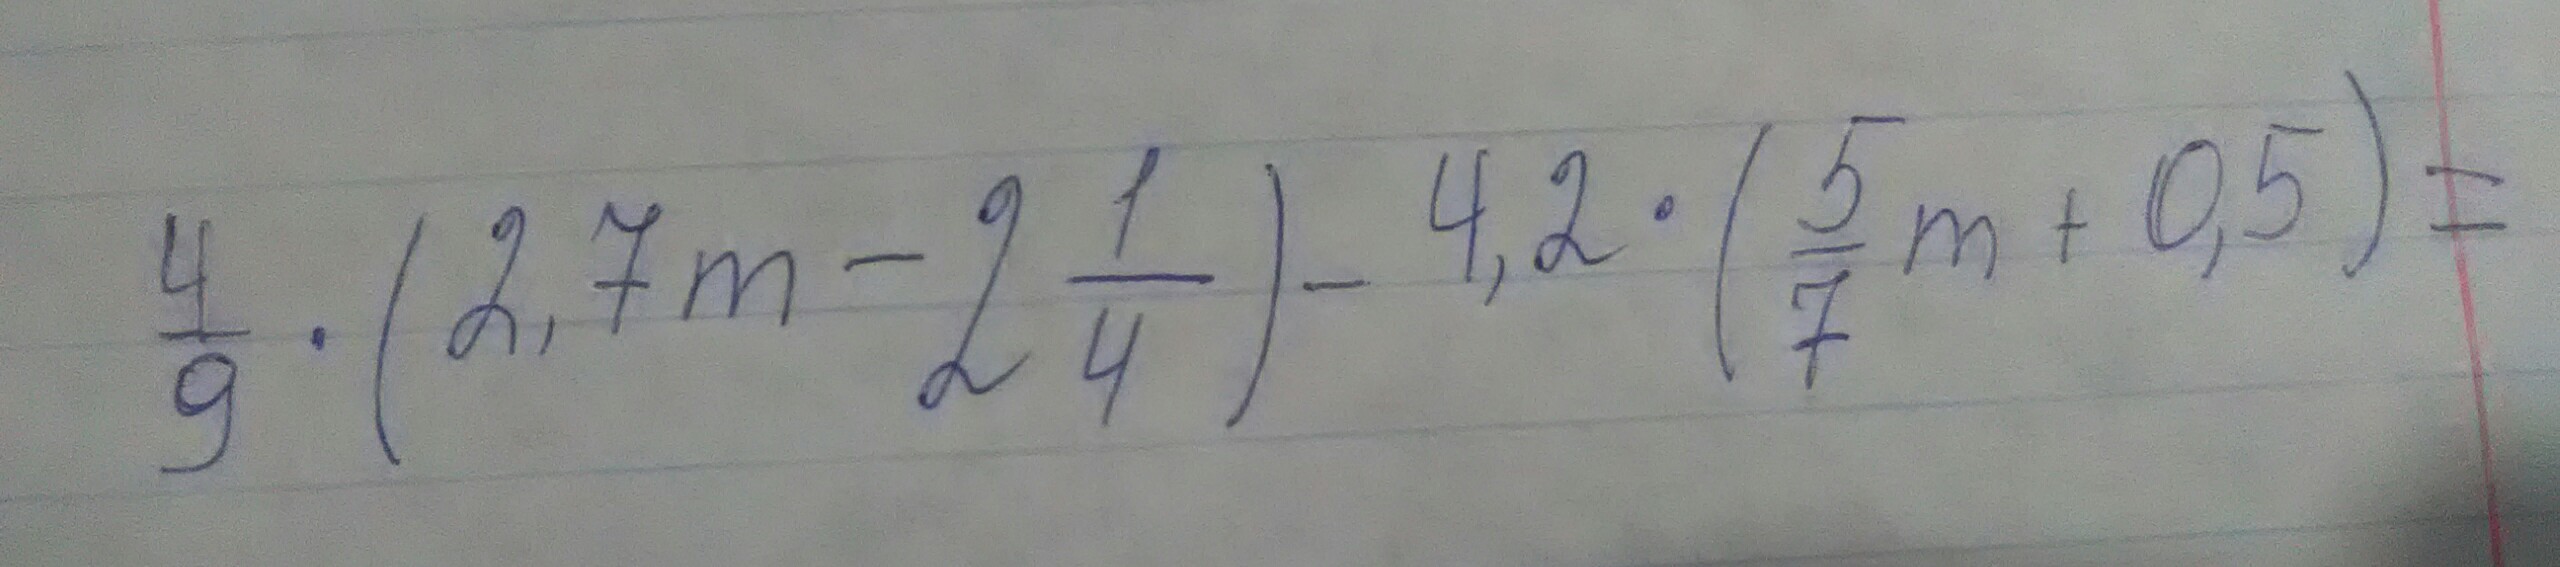 4/9 · (2,7m - 2 1/4) - 4,2 · (5/7 m + 0,5) =